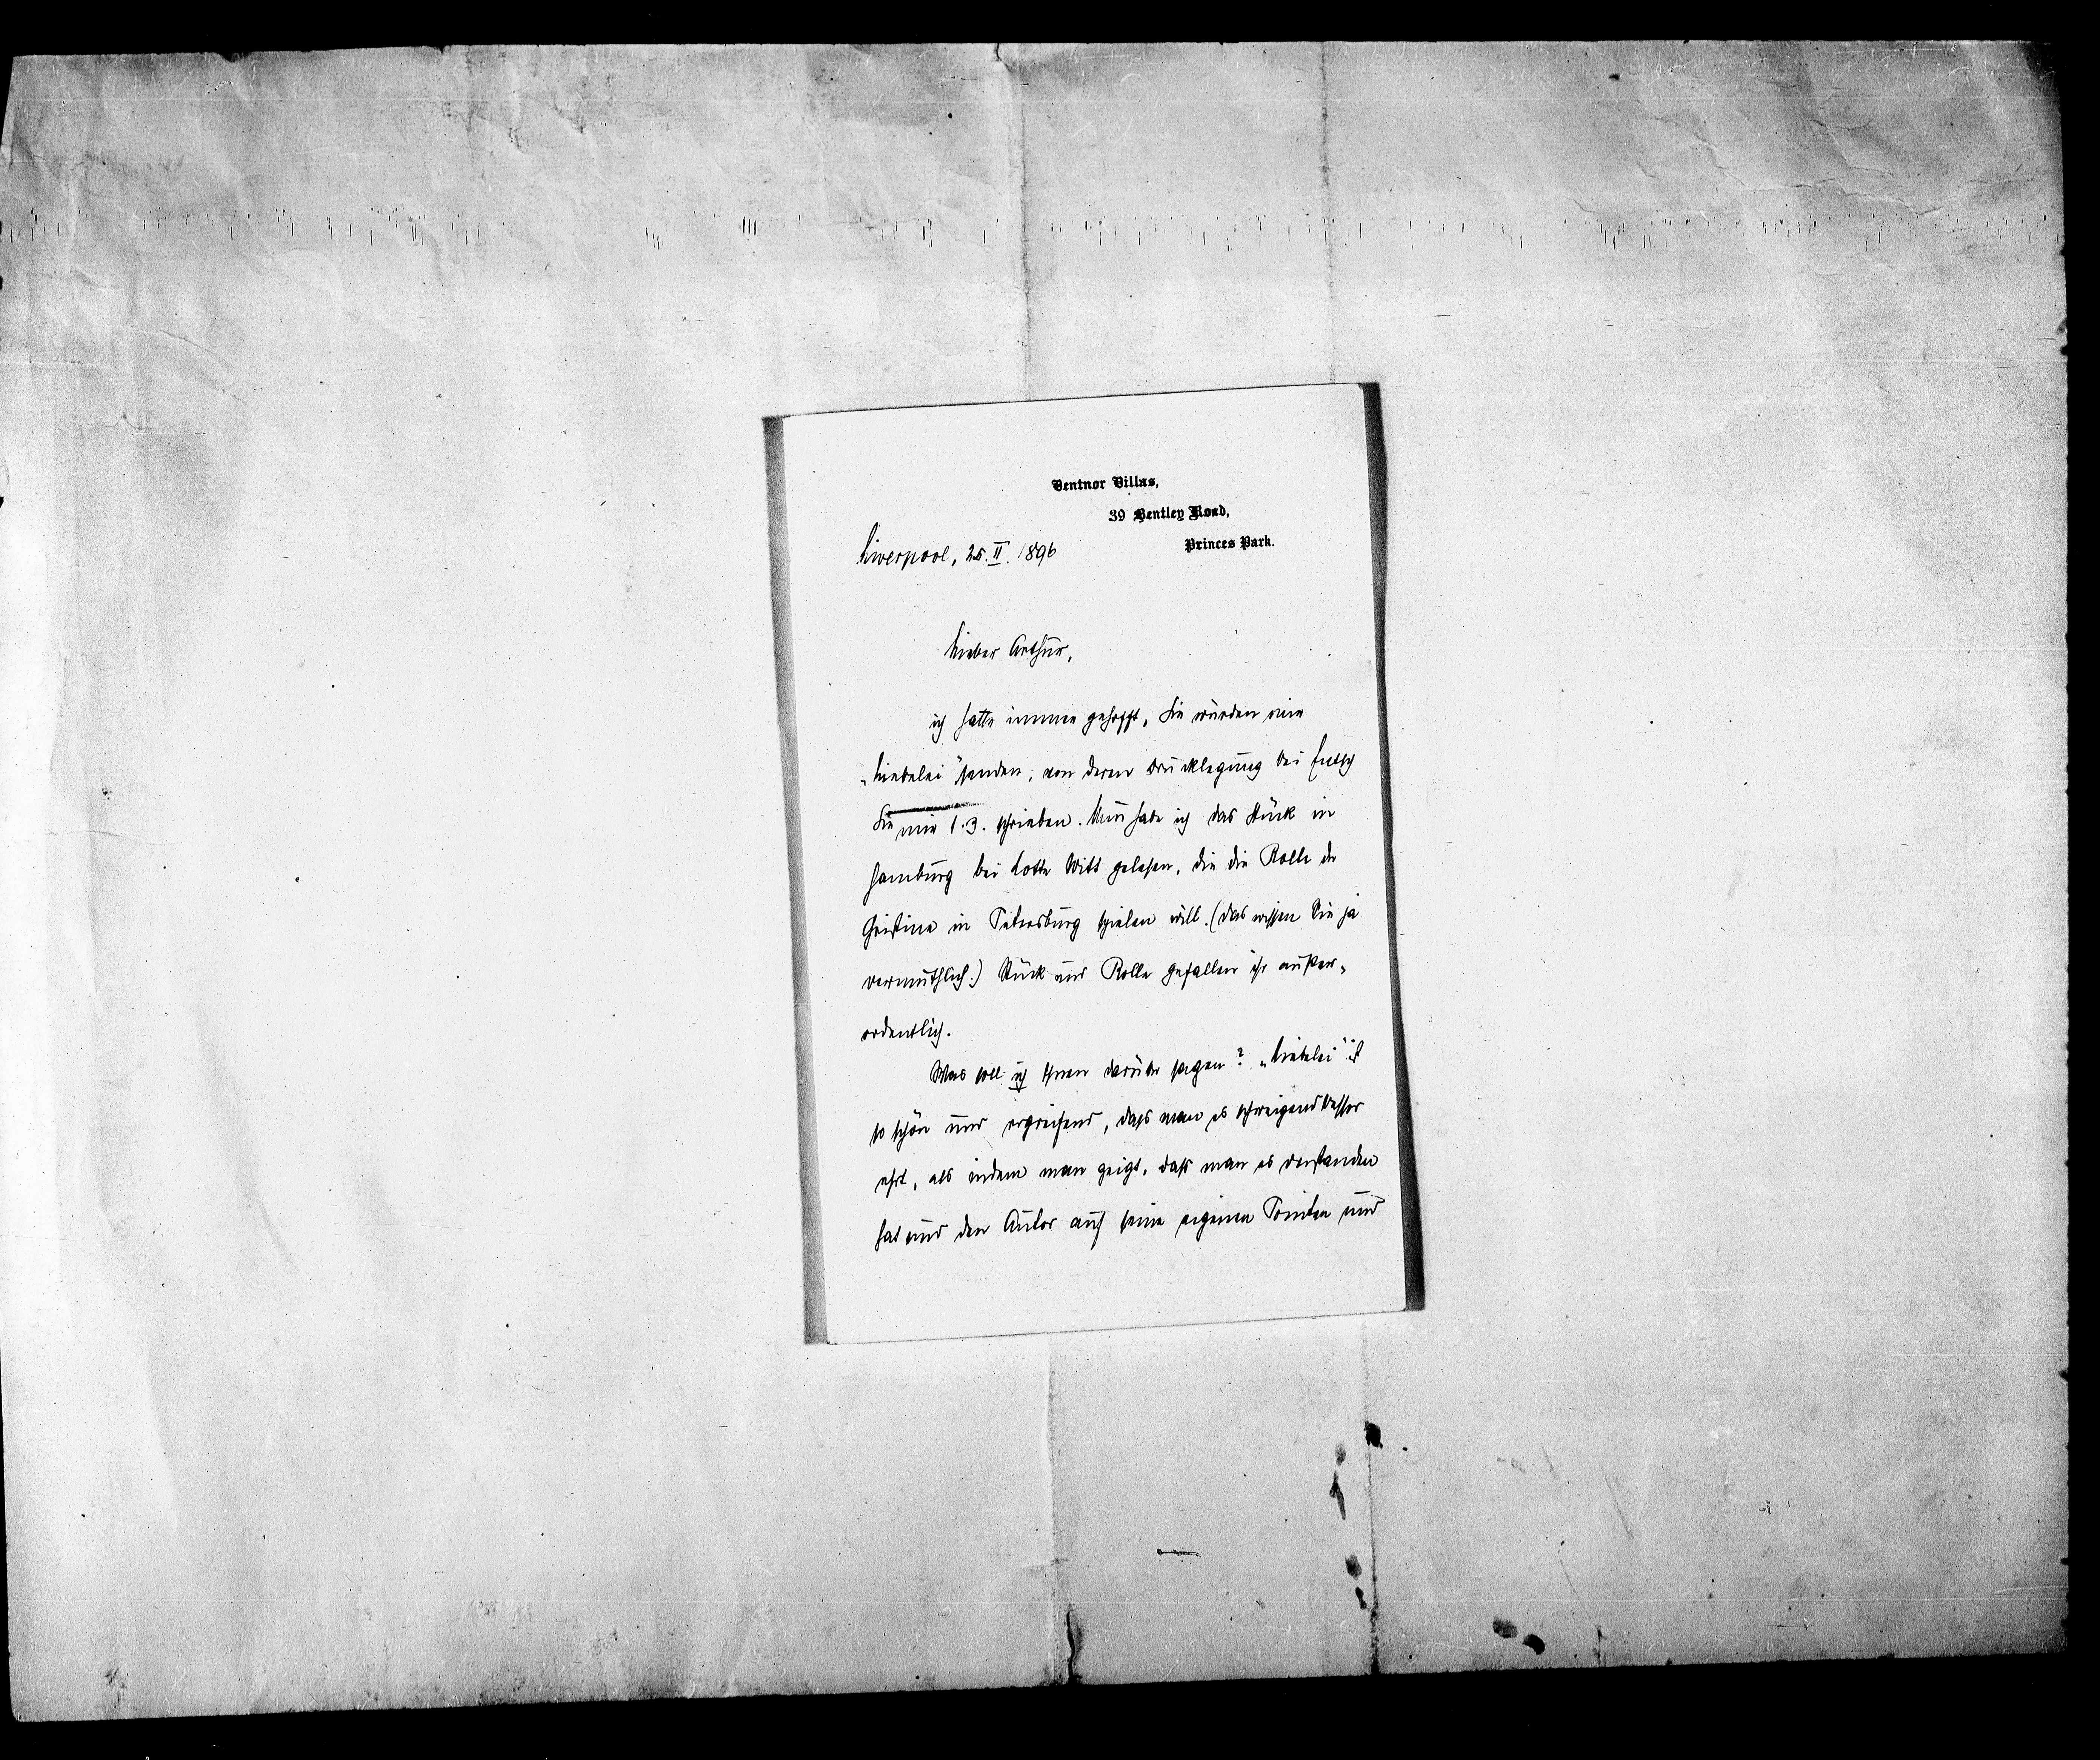 Ventnor Villas,
39 Bentley Road,
Princes Park.
Liverpool, 25. II. 1896
Lieber Arthur,
ich hatte immer gehofft, Sie würden mir
„Liebelei“ senden, von deren Drucklegung bei
Sie mir schrieben. Nun habe ich das Stück in
Hamburg bei Lotte Witt gelesen, die die Rolle der
Christine in Petersburg spielen will. (Das wissen Sie ja
vermuthlich.) Stück und Rolle gefallen ihr außer-
ordentlich.
Was soll ich Ihnen darüber sagen? „Liebelei“ ist
so schön und ergreifend, dass man es schweigend besser
ehrt, als indem man zeigt, dass man es verstanden
hat und den Autor auf seine eigenen Pointen und